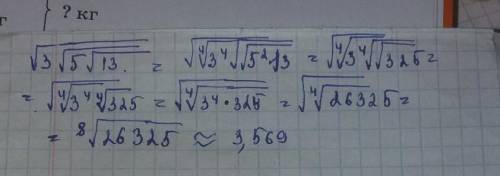 ? кг
√(3√(5√13)) = √(⁴√(3⁴)√(√(5²·13))) = √(⁴√(3⁴)√(√325)) =
= √(⁴√(3⁴) ⁴√325) = √(⁴√(3⁴·325)) = √(⁴√26325) =
= ⁸√26325 ≈ 3,569